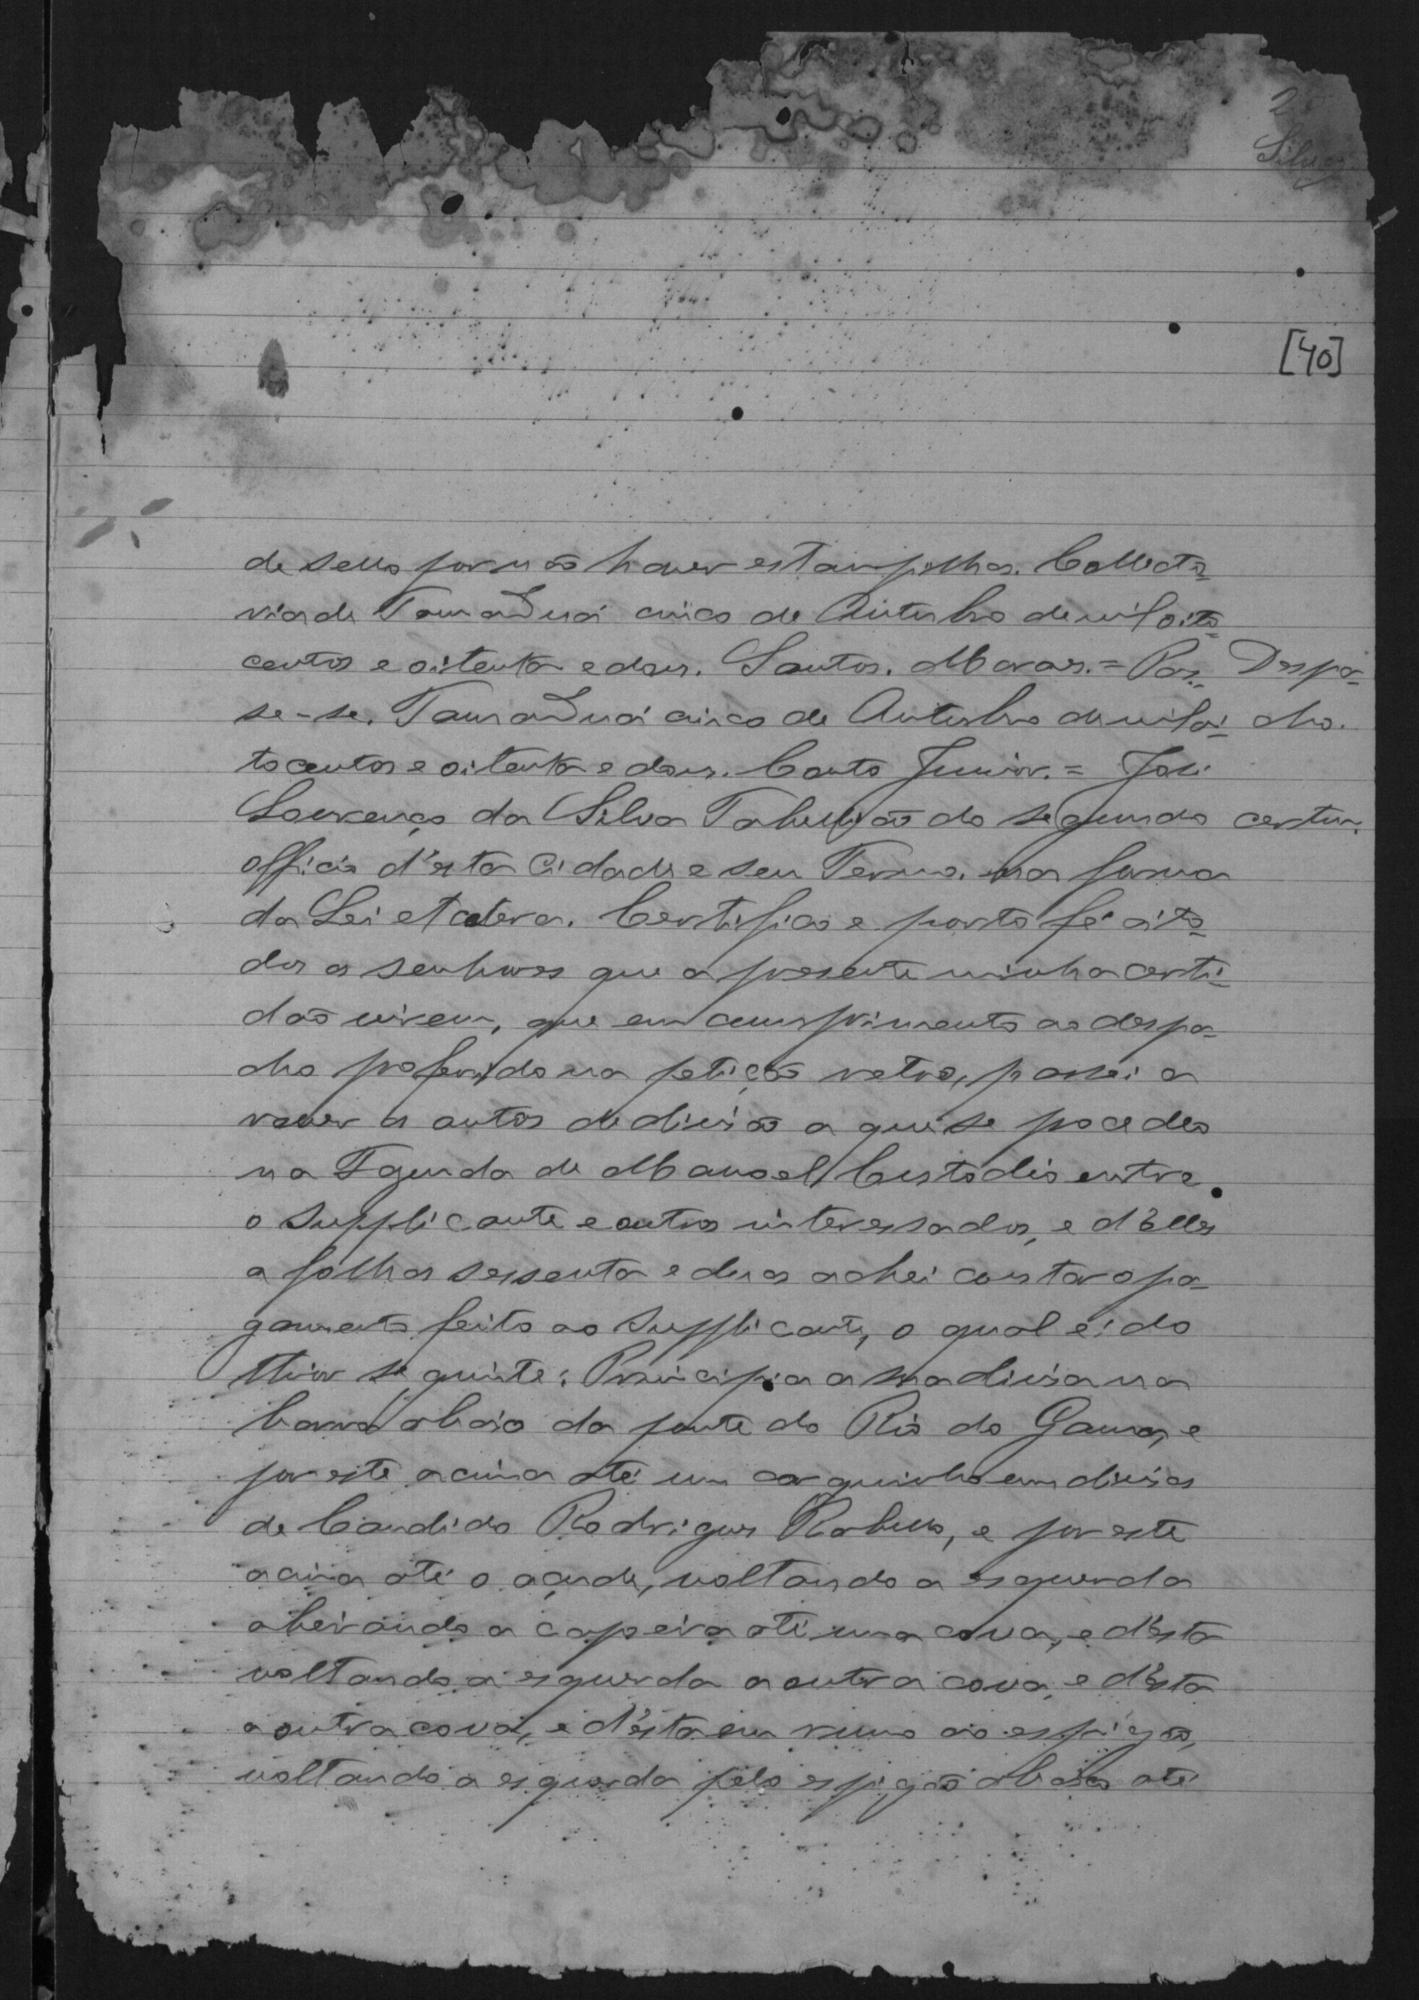 2
Silva
[40]
de sello por não haver estampilhas. Collecto-
ria de Tamanduá cinco de Outubro de mil oito-
centos e oitenta e dous. Santos. Moraes. = Pas- Despa-
se-se. Tamanduá cinco de Outubro de mil oi- cho.
tocentos e oitenta e dous. Couto Junior. = José
Lourenço da Silva Tabellião do segundo certm.
officio d'esta Cidade e seu Termo, na forma
da Lei etcetera. Certifico e porto fé a to-
dos os senhores que a presente minha certi-
dão virem, que em cumprimento ao despa-
cho proferido na petição retro, passei a
rever os autos de divisão a que se procedeo
na Fazenda de Manoel Custodio entre
o Supplicante e outros interessados, e d'elles
a folhas sessenta e duas achei constar o pa-
gamento feito ao Supplicante, o qual é do
theor seguinte: Principia a sua divisa na
barra abaixo da ponte do Rio do Gama, e
por este acima até um corguinho em divisas
de Candido Rodrigues Rabello, e por este
acima até o açude, voltando a esquerda
abeirando a capoeira até uma cova, e d'esta
voltando a esquerda a outra cova, e d'esta
a outra cova, e d'esta em rumo ao espigão,
voltando a esquerda pelo espigão abaixo até